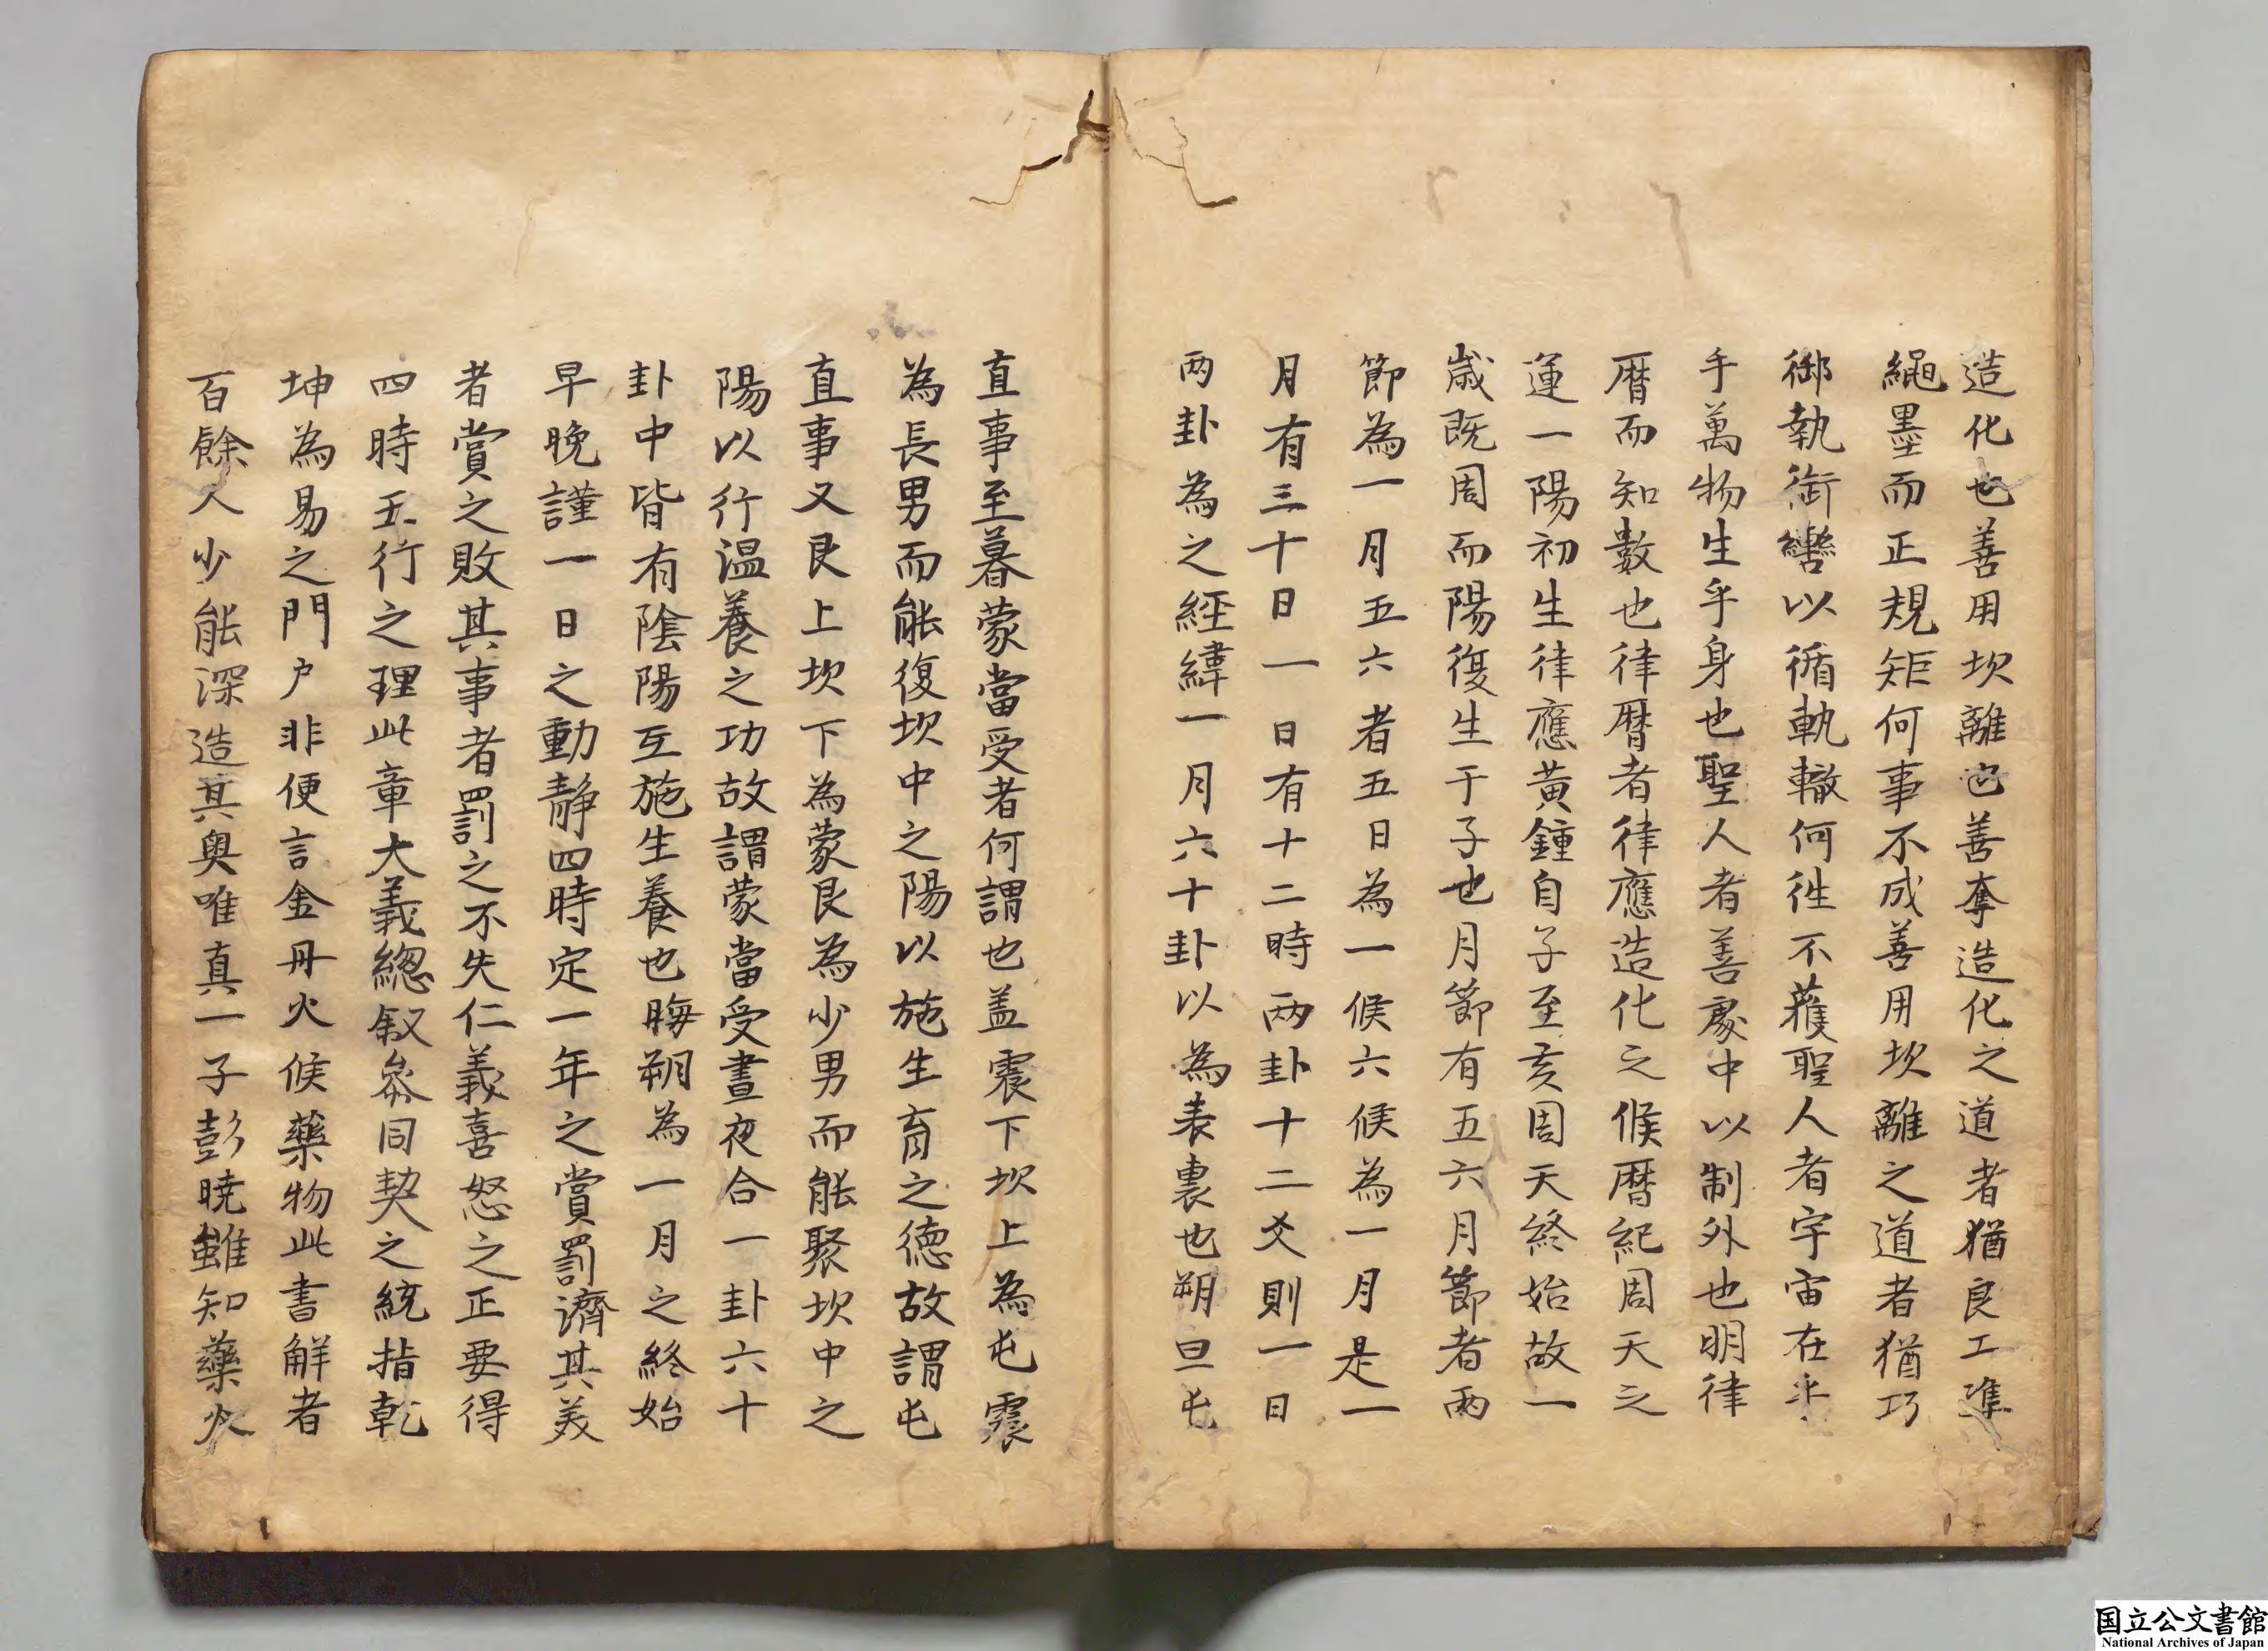 造化也善用坎離也善奪造化之道者猶良工準
繩墨而正規矩何事不成善用坎離之道者猶巧
御執銜轡以循軌轍何往不獲聖人者宇宙在乎
手萬物生乎身也聖人者善處中以制外也明律
曆而知數也律曆者律應造化之候曆紀周天之
運一陽初生律應黃鍾自子至亥周天終始故一
歲既周而陽復生于子也月節有五六月節者兩
節為一月五六者五日為一候六候為一月是一
月有三十日一日有十二時兩卦十二爻則一日
兩卦為之經緯一月六十卦以為表裏也朔旦屯
直事至暮蒙當受者何謂也盖震下坎上為屯震
為長男而能復坎中之陽以施生育之德故謂屯
直事又艮上坎下為蒙艮為少男而能聚坎中之
陽以行温養之功故謂蒙當受晝夜合一卦六十
卦中皆有陰陽互施生養也晦朔為一月之終始
早晚謹一日之動静四時定一年之賞罰濟其美
者賞之敗其事者罰之不失仁義喜怒之正要得
四時五行之理此章大義總叙叅同契之統指乾
坤為易之門户非便言金丹火候藥物此書解者
百餘人少能深造其奥唯真一子彭曉雖知藥火
国立公文書館
National Archives of Japan